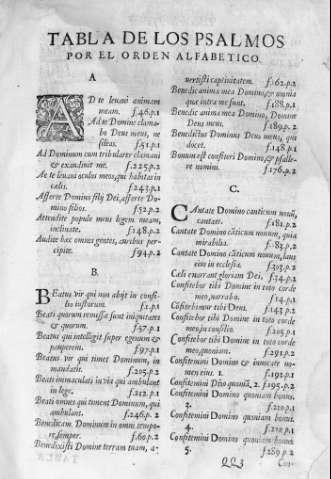 TABLA DE LOS PSALMOS
POR EL ORDEN ALFABETICO.
A
AD te leuaui animam
meam. f.46.p.1
Ad te Domine clama-
bo Deus meus, ne
sileas. f.51.p.1
Ad Dominum cum tribularer clamaui
& exaudiuit me. f.225.p.2
Ad te leuaui oculos meos, qui habitas in
cælis. f.243.p.1
Afferte Domino filij Dei, afferte Do-
mino filios. f.52.p.2
Attendite popule meus legem meam,
inclinate. f.148.p.2
Audite hæc omnes gentes, auribus per-
cipite. f.94.p.2
B.
BEatus vir qui non abijt in consi-
lio impiorum. f.1.p.1
Beati quorum remissæ sunt iniquitates
& quorum. f.57.p.1
Beatus qui intelligit super egenum &
pauperem. f.97.p.1
Beatus vir qui timet Dominum, in
mandatis. f.205.p.2
Beati immaculati in via qui ambulant
in lege. f.212.p.1
Beati omnes qui timent Dominum, qui
ambulant. f.246.p.2
Benedicam Dominum in omni tempo-
re, semper. f.60.p.2
Benedixisti Domine terram tuam, a-
uertisti captiuitatem. f.162.p.2
Benedic anima mea Domino, & omnia
quæ intra me sunt. f.188.p.1
Benedic anima mea Domino, Domine
Deus meus. f.189.p.2
Benedictus Dominus Deus meus, qui
docet. f.148.p.1
Bonum est confiteri Domino, & psalle-
re nomini. f.176.p.2
C.
CAntate Domino canticum nouũ,
cantate. f.181.p.2
Cantate Domino cãticum nouum, quia
mirabilia. f.83.p.2
Cantate Domino cãticum nouum, laus
eius in ecclesia. f.303.p.2
Cæli enarrant gloriam Dei, f.34.p.1
Confitebor tibi Domine in toto corde
meo, narrabo. f.14.p.1
Cõfitebimur tibi Deus. f.143.p.2
Confitebor tibi Domine in toto corde
meo, in consilio. f.205.p.1
Confitebor tibi Domine in toto corde
meo, quoniam. f.291.p.2
Confitemini Domino & inuocate no-
men eius. 1. f.192.p.1
Confitemini Dño quoniã, 2. f.195.p.2
Confitemini Domino quoniam bonus.
3. f.210.p.1
Confitemini Domino quoniam bonus.
4. f.210.p.1
Confitemini Domino quoniam bonus
5. f.289.p.2
QQ3